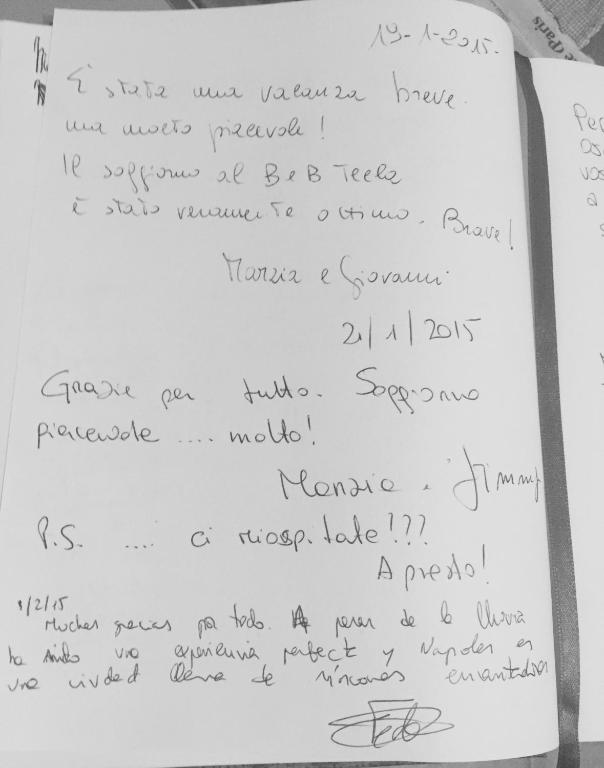 19-1-2015.
È stata una vacanza breve
ma molto piacevole!
Il soggiorno al BeB Tecla
è stato veramente ottimo. Brave!
Marzia e Giovanni
21/1/2015
Grazie per tutto. Soggiorno
piacevole .... molto!
Jimmy
P.S. .... ci riospitate!???
A presto!
1/2/15
Muchas gracias por todo. A pesar de la lluvia
ha sido una experiencia perfecta y Napoles es
una ciudad llena de rincones encantadores
Per